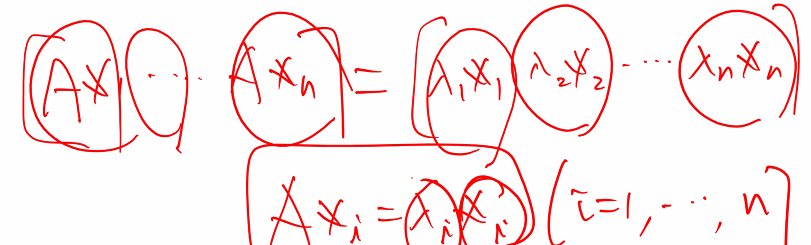 [Ax₁ ⋯ Axₙ] = [λ₁x₁ λ₂x₂ ⋯ λₙxₙ]
Axᵢ = λᵢxᵢ (i=1, ⋯, n]